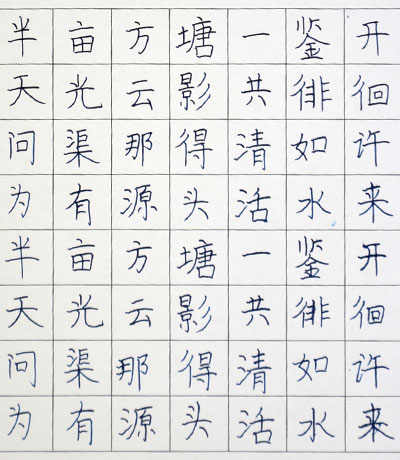 半亩方塘一鉴开
天光云影共徘徊
问渠那得清如许
为有源头活水来
半亩方塘一鉴开
天光云影共徘徊
问渠那得清如许
为有源头活水来